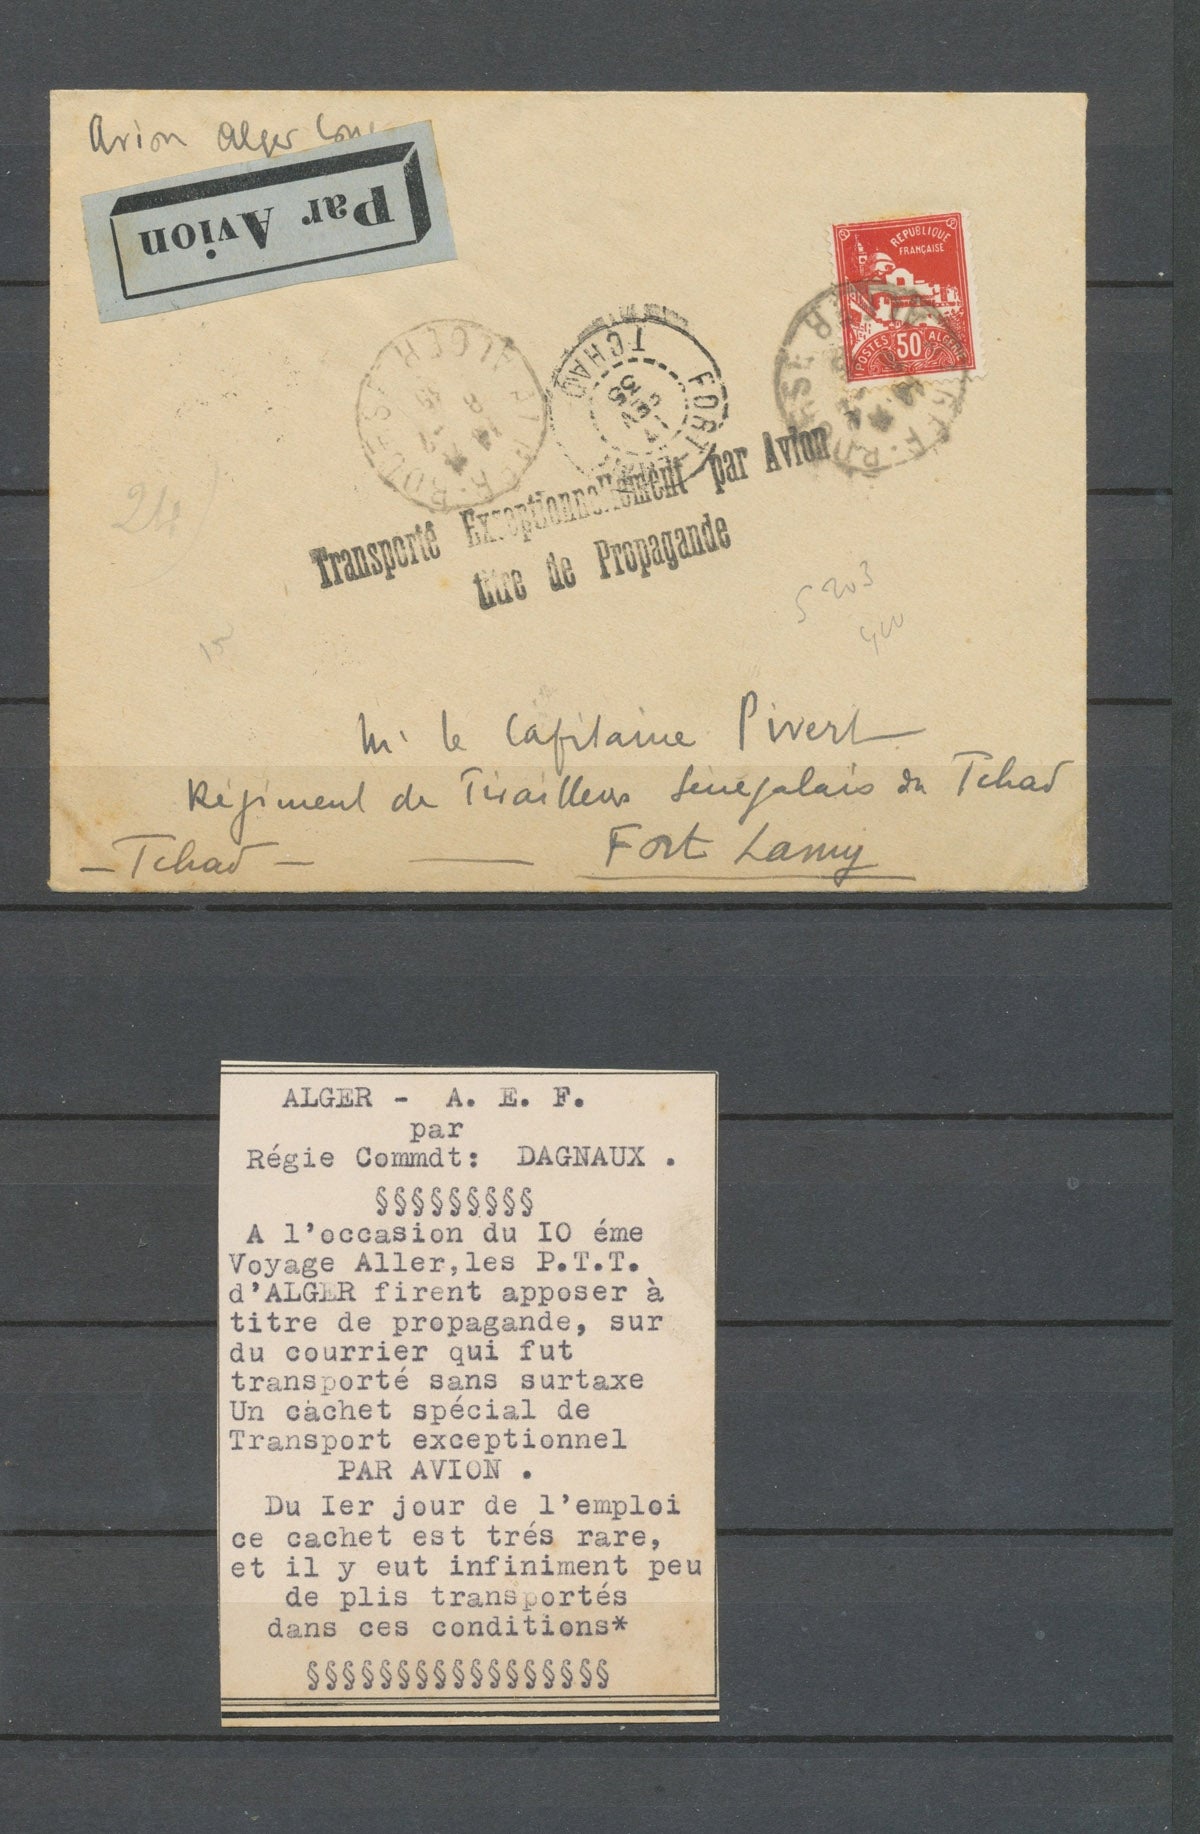 Avion Alger
Par Avion
REPUBLIQUE
FRANÇAISE
POSTES 50 ALGERIE
ALGER
ALGER
FORT
TCHAD
Transporté Exceptionnellement par Avion
titre de Propagande
24
15
5203
400
Mr le Capitaine Pivert
Régiment de Tirailleurs Sénégalais du Tchad
- Tchad - Fort Lamy
ALGER - A. E. F.
par
Régie Commdt: DAGNAUX .
§§§§§§§§§
A l'occasion du IO éme
Voyage Aller,les P.T.T.
d'ALGER firent apposer à
titre de propagande, sur
du courrier qui fut
transporté sans surtaxe
Un cachet spécial de
Transport exceptionnel
PAR AVION .
Du Ier jour de l'emploi
ce cachet est trés rare,
et il y eut infiniment peu
de plis transportés
dans ces conditions*
§§§§§§§§§§§§§§§§§